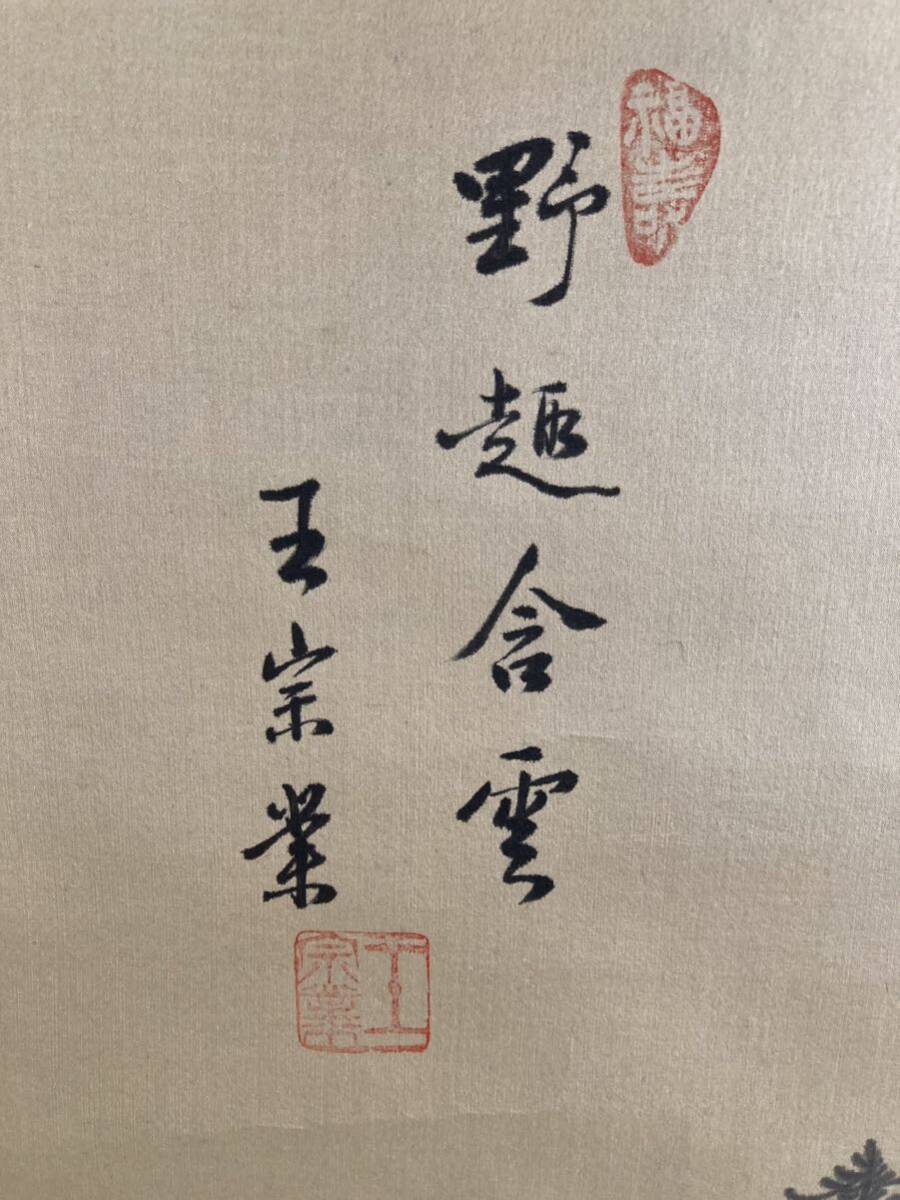 野趣含雲
王宗業
王宗業